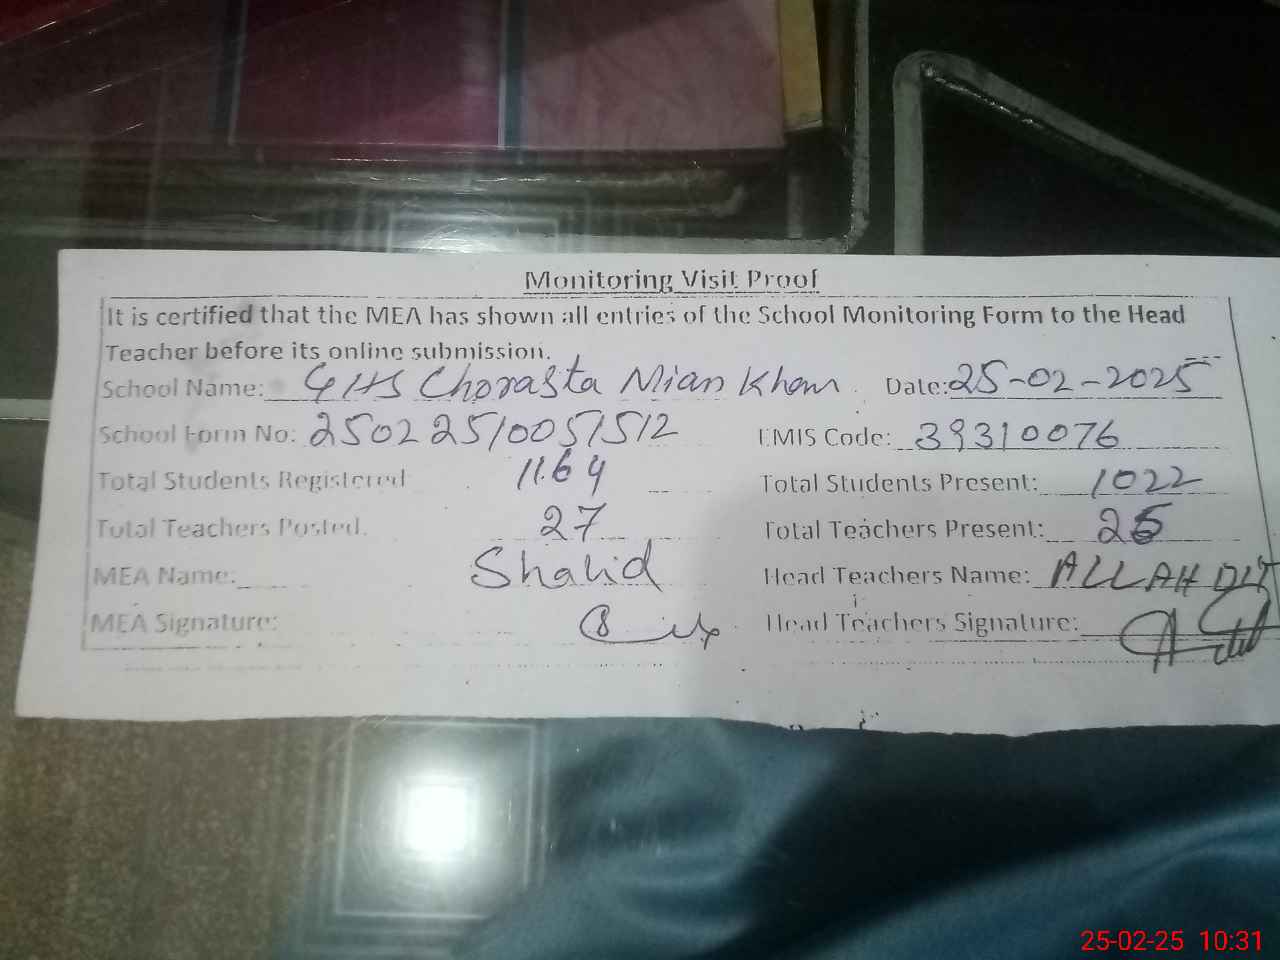 Monitoring Visit Proof
It is certified that the MEA has shown all entries of the School Monitoring Form to the Head
Teacher before its online submission.
School Name: GHS Chorasta Mian Khan Date: 25-02-2025
School Form No: 25022510051512 EMIS Code: 39310076
Total Students Registered 1164 Total Students Present: 1022
Total Teachers Posted. 27 Total Teachers Present:
MEA Name: Shahid Head Teachers Name: ALLAH
MEA Signature: Head Teachers Signature:
25-02-25 10:31